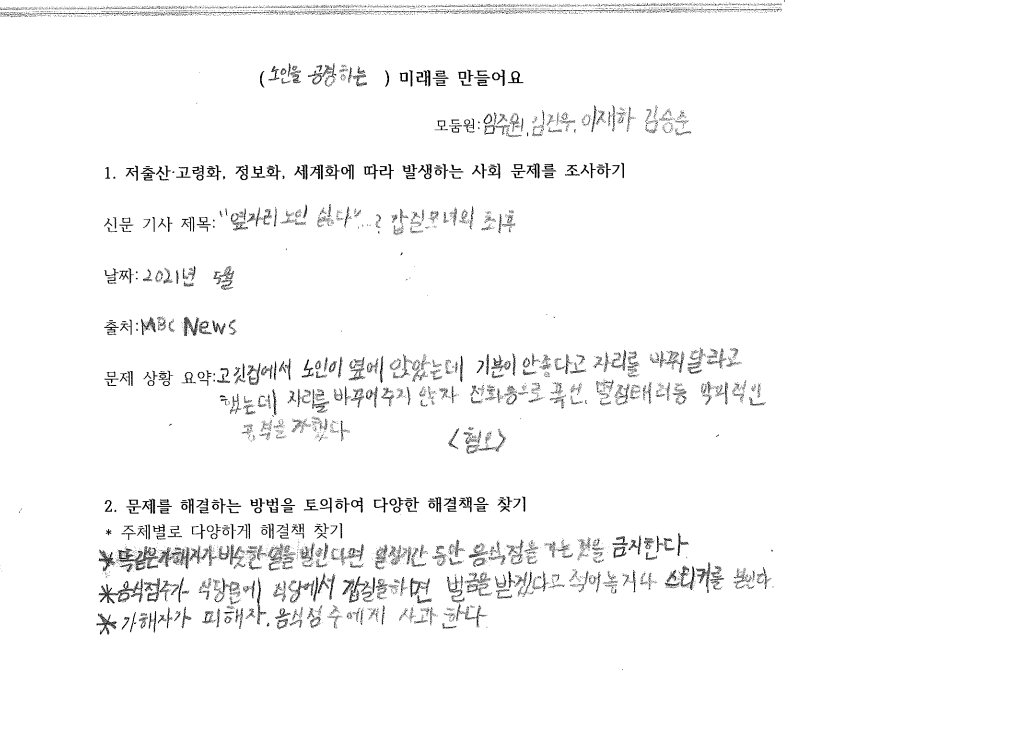 (노인을 공경하는 ) 미래를 만들어요
모둠원:임주원, 김진우, 이재하 김승순
1. 저출산·고령화, 정보화, 세계화에 따라 발생하는 사회 문제를 조사하기
신문 기사 제목:"옆자리 노인 싫다"...? 갑질모녀의 최후
날짜:2021년 5월
출처:MBC News
문제 상황 요약:고깃집에서 노인이 옆에 앉았는데 기분이 안좋다고 자리를 바꿔달라고
했는데 자리를 바꾸어주지 않자 전화등으로 폭언, 별점테러등 악의적인
공격을 가했다
<혐오>
2. 문제를 해결하는 방법을 토의하여 다양한 해결책을 찾기
* 주체별로 다양하게 해결책 찾기
* 똑같은가해자가 비슷한 일을 벌인다면 일정기간 동안 음식점을 가는 것을 금지한다
* 음식점주가 식당문에 식당에서 갑질을하면 벌금을 받겠다고 적어놓거나 스티커를 붙인다.
* 가해자가 피해자, 음식점 주에게 사과 한다